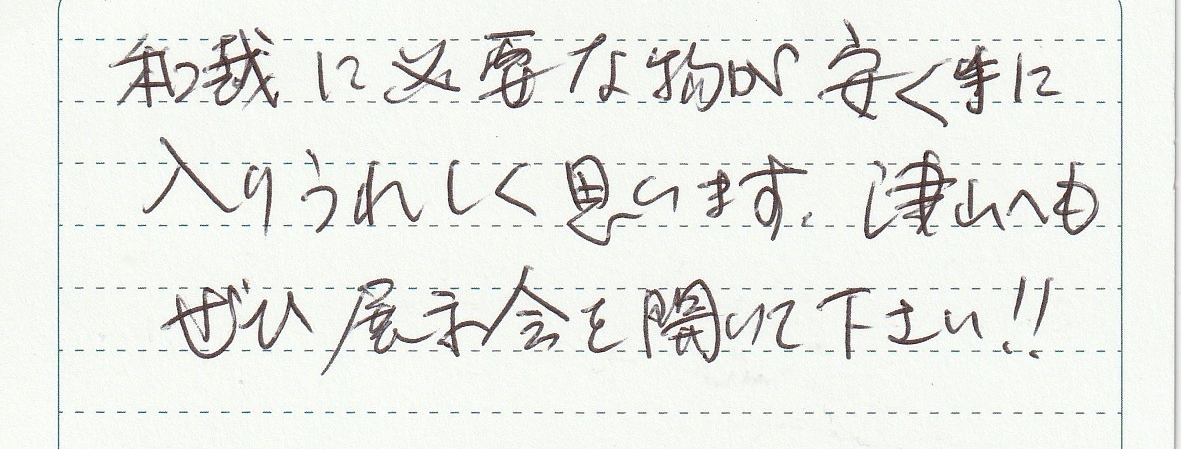 和裁に必要な物が安く手に
入りうれしく思います。津山へも
ぜひ展示会を開いて下さい!!